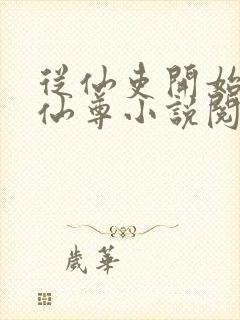 從仙吏開始
仙尊小說閱
歲華